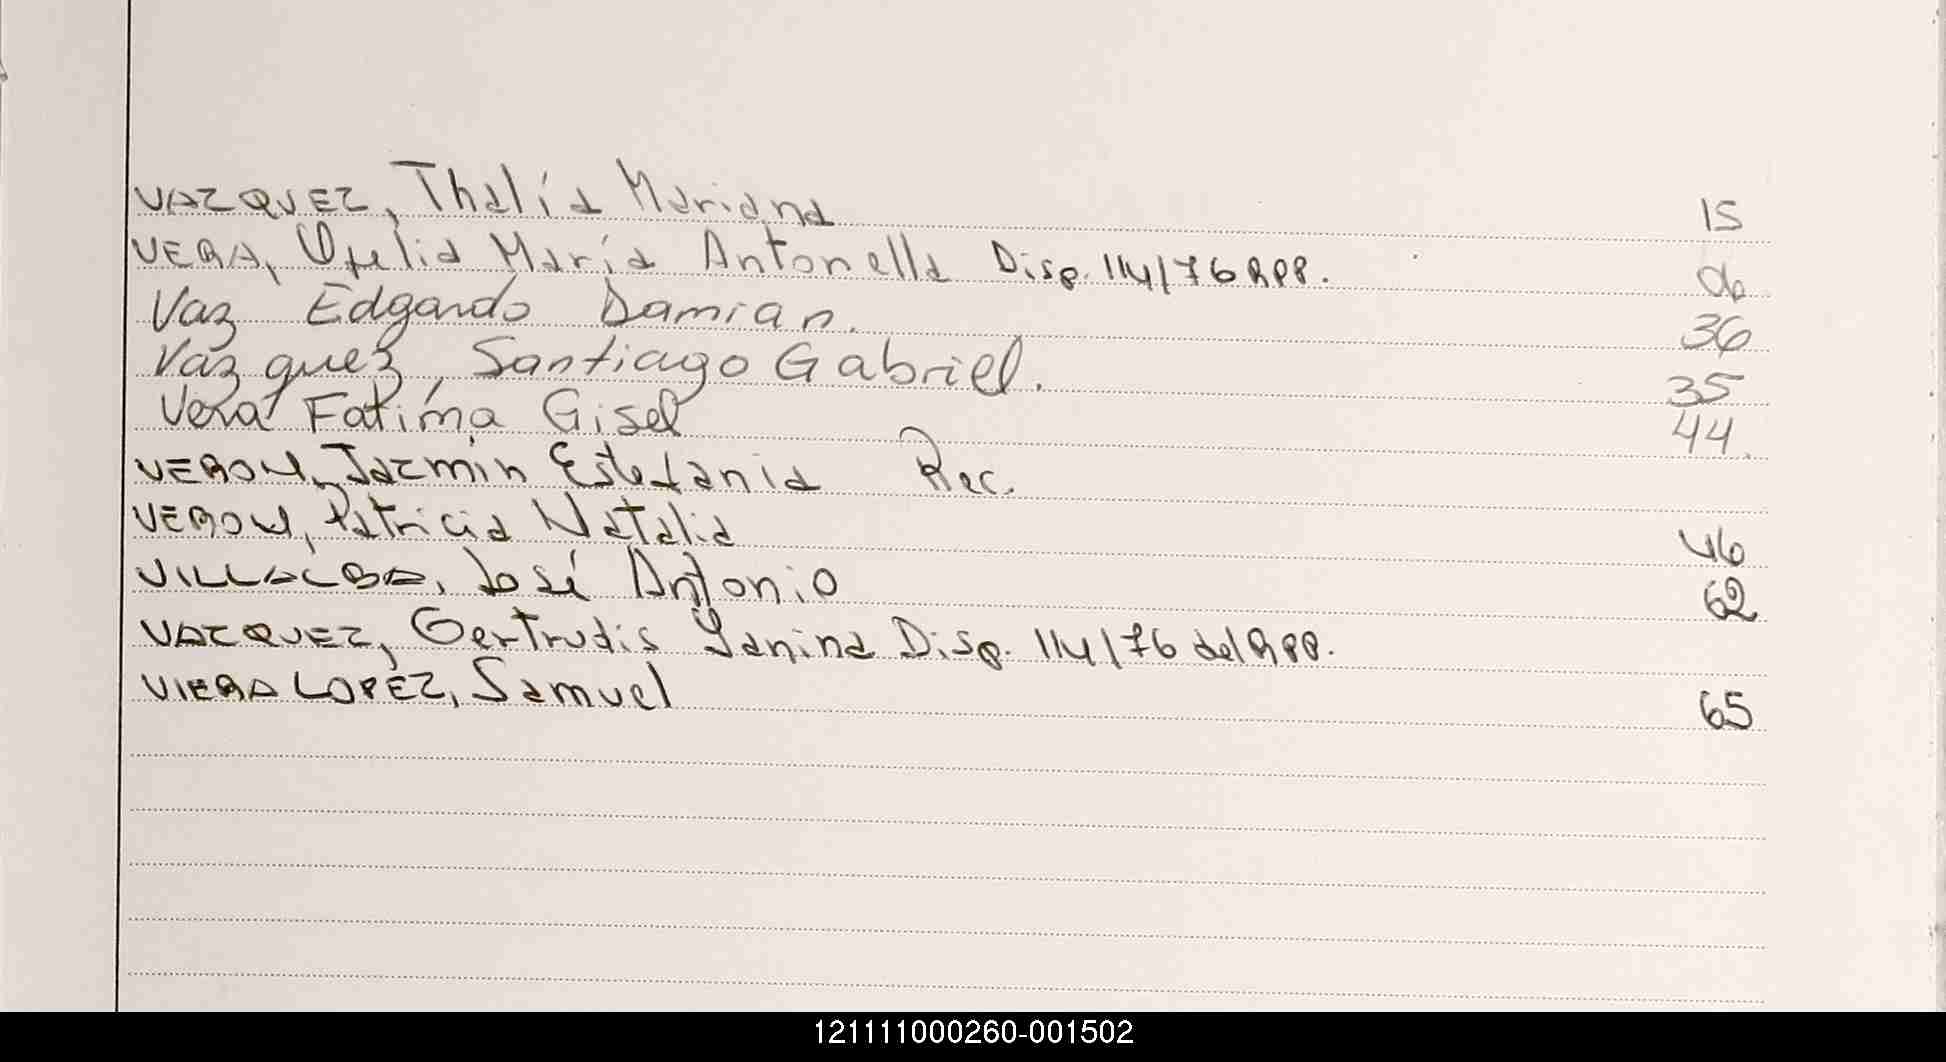 VAZQUEZ, Thalía Mariana 15
VERA, Ofelia María Antonella Disp. 114/76 RPP. 06
Vaz Edgardo Damian. 36
Vazquez, Santiago Gabriel. 35
Vera Fatima Gisel 44.
VERON, Jazmín Estefania Rec.
VERON, Patricia Natalia 46
VILLALBA, José Antonio 62
VAZQUEZ, Gertrudis Yanina Disp. 114/76 del RPP.
VIERA LOPEZ, Samuel 65
121111000260-001502